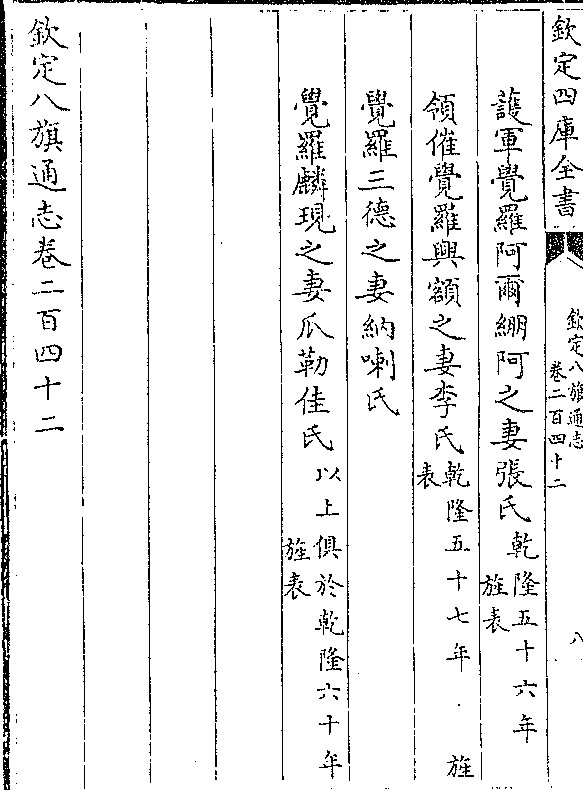 欽定四庫全書
欽定八旗通志
卷二百四十二
八
護軍覺羅阿爾綳阿之妻張氏乾隆五十六年旌表
領催覺羅興額之妻李氏乾隆五十七年旌表
覺羅三德之妻納喇氏
覺羅麟現之妻瓜勒佳氏以上俱於乾隆六十年旌表
欽定八旗通志卷二百四十二